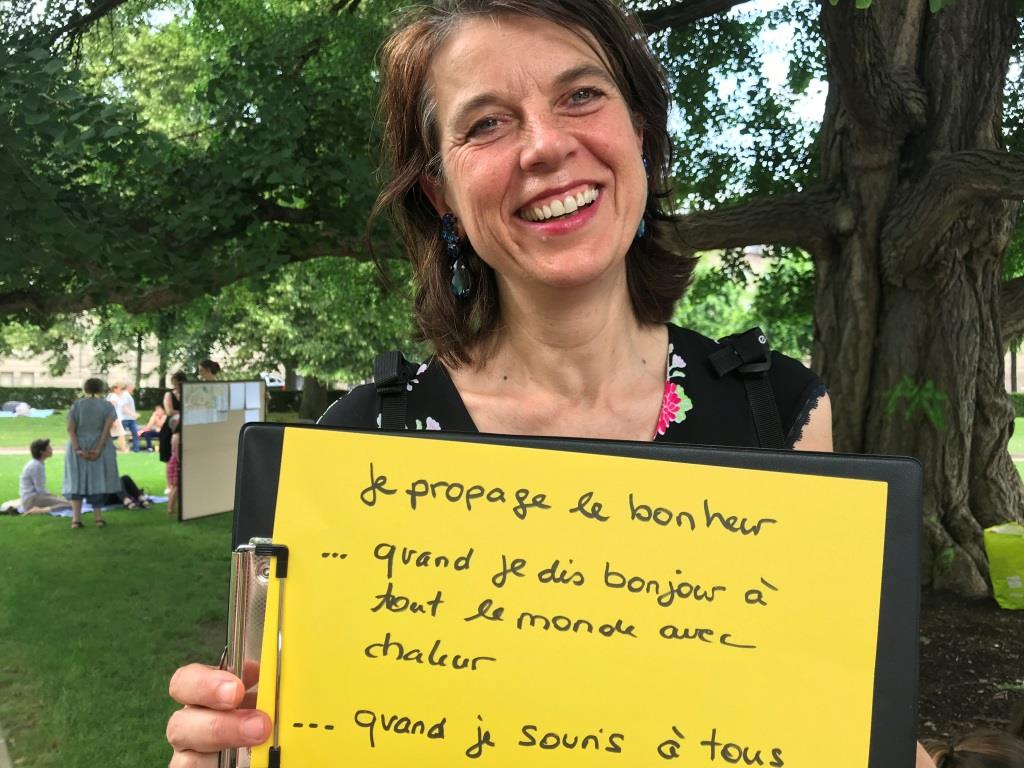 Je propage le bonheur
... quand je dis bonjour à
tout le monde avec
chaleur
... quand je souris à tous